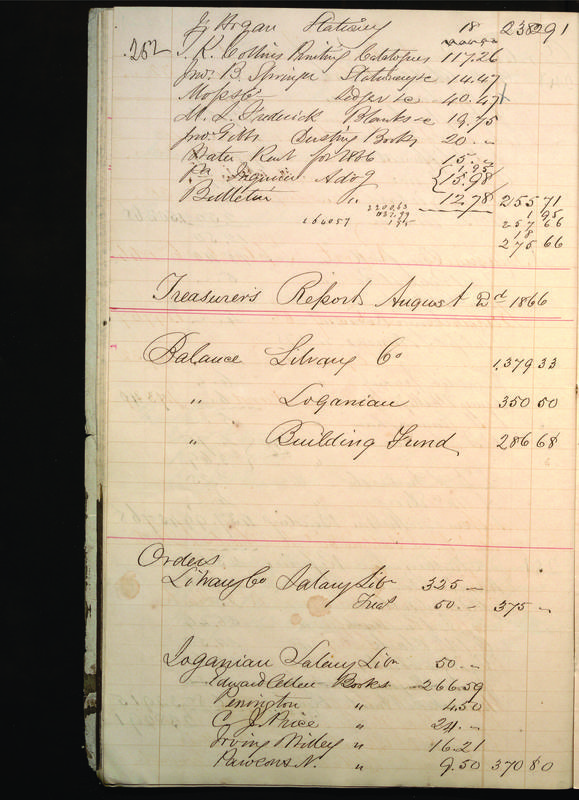 J. Hogan Stationery 18 238291
252
T. K. Collins Printing Catalogues 117.26
Jno. B. Springer Stationery &c 14.47
Moss & Co Ledger &c 40.47
M. L. Frederick Blanks &c 19.75
Jno. Gith Dusting Books 20 . -
Water Rent for 1866 15 . -
1.95
Pa. Inquirer Advg 15.98
Bulletin " 12.78 255 71
1 95
257 66
18
275 66
164057
Treasurer's Report August 2d 1866
Balance Library Co 1,379 33
" Loganian 350 50
" Building Fund 286 68
Orders
Library Co Salary Libn 325 -
Treas 50 . - 375 -
Loganian Salary Libn 50 . -
Edward Allen Books 266.59
Penington " 4.50
C. J. Price " 24 . -
Irving Willey " 16.21
Pawsons N. " 9.50 370 80